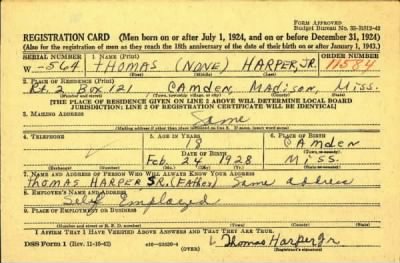 FORM APPROVED
Budget Bureau No. 33-R012-42
REGISTRATION CARD (Men born on or after July 1, 1924, and on or before December 31, 1924)
(Also for the registration of men as they reach the 18th anniversary of the date of their birth on or after January 1, 1943.)
SERIAL NUMBER 1. NAME (Print) ORDER NUMBER
W 564 THOMAS (NONE) HARPER, JR. 11584
(First) (Middle) (Last)
2. PLACE OF RESIDENCE (Print)
Rt. 2 Box 121 Camden, Madison, Miss.
(Number and street) (Town, township, village, or city) (County) (State)
[THE PLACE OF RESIDENCE GIVEN ON LINE 2 ABOVE WILL DETERMINE LOCAL BOARD
JURISDICTION; LINE 2 OF REGISTRATION CERTIFICATE WILL BE IDENTICAL]
3. MAILING ADDRESS
Same
[Mailing address if other than place indicated on line 2. If same, insert word same]
4. TELEPHONE 5. AGE IN YEARS 6. PLACE OF BIRTH
18 Camden
DATE OF BIRTH (Town or county)
Feb. 24 1928 Miss.
(Mo.) (Day) (Yr.) (State or country)
7. NAME AND ADDRESS OF PERSON WHO WILL ALWAYS KNOW YOUR ADDRESS
Thomas Harper Sr. (Father) Same address
8. EMPLOYER'S NAME AND ADDRESS
Self Employed
9. PLACE OF EMPLOYMENT OR BUSINESS
(Number and street or R. F. D. number) (Town) (County) (State)
I AFFIRM THAT I HAVE VERIFIED ABOVE ANSWERS AND THAT THEY ARE TRUE.
DSS Form 1 (Rev. 11-16-42) (OVER) Thomas Harper Jr
(Registrant's signature)